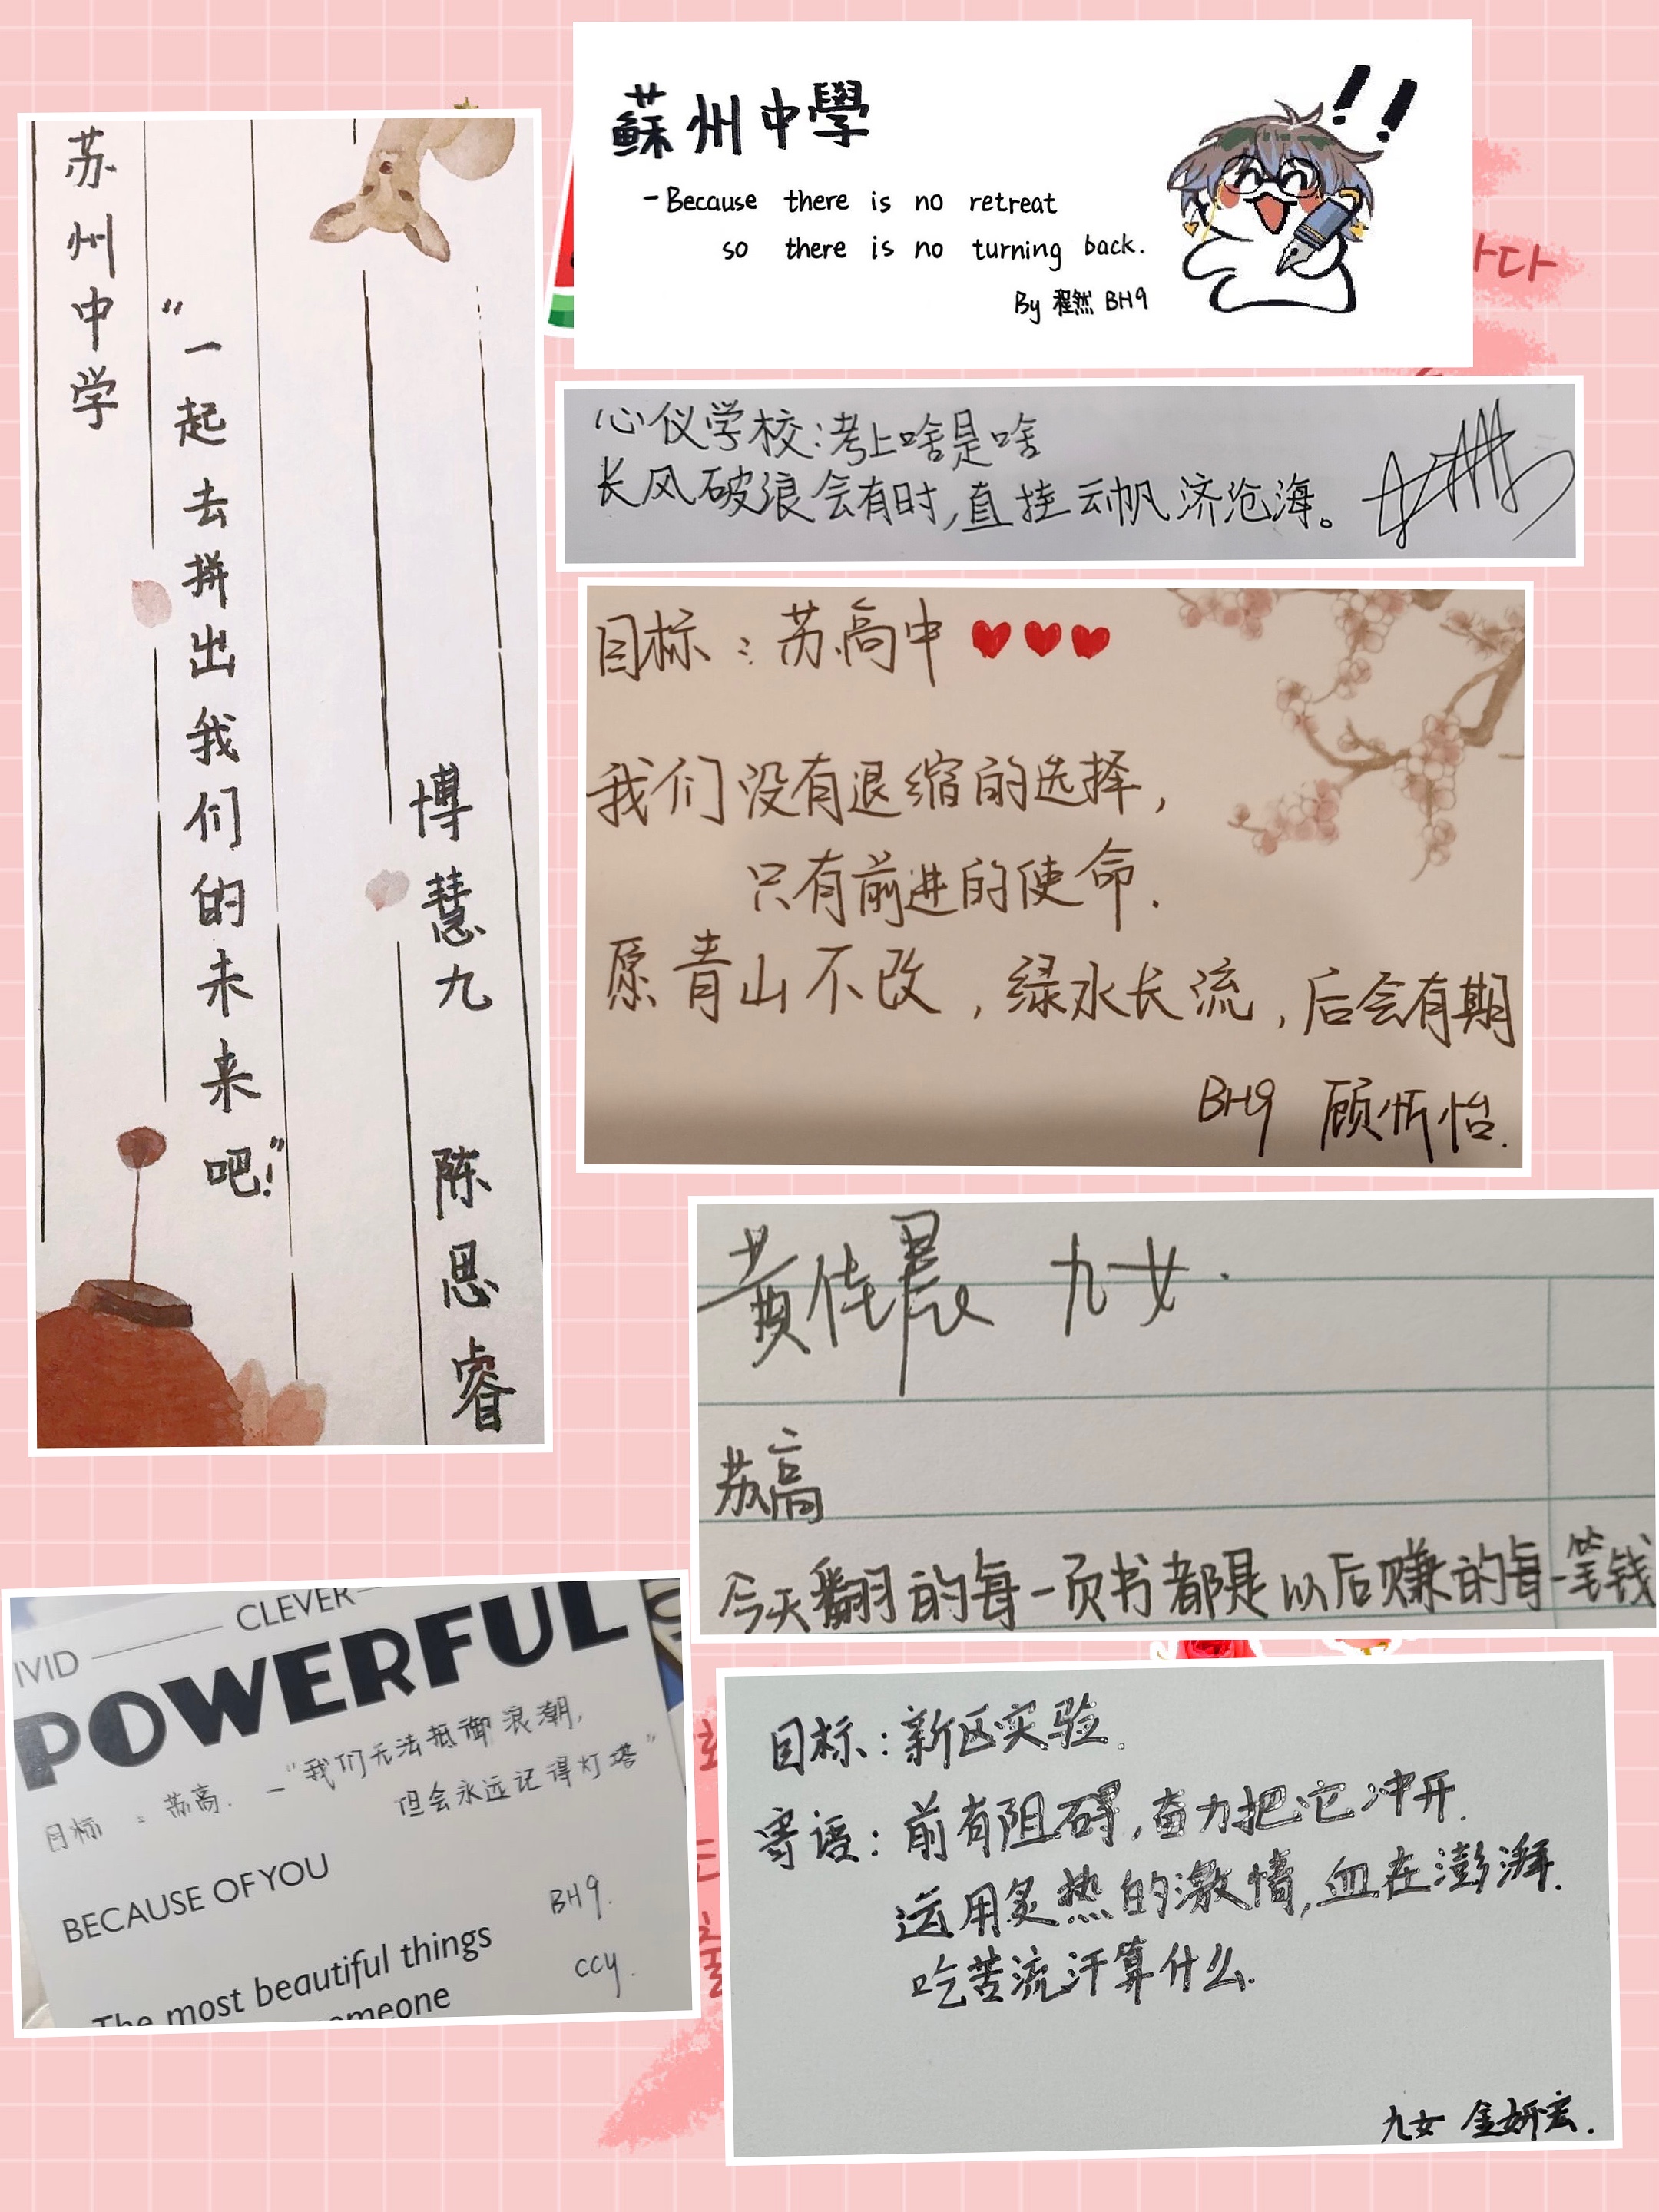 苏州中学
"一起去拼出我们的未来吧!"
博慧九 陈思睿
蘇州中學
-Because there is no retreat
so there is no turning back.
By 程然 BH9
心仪学校:考上啥是啥
长风破浪会有时,直挂云帆济沧海。
目标:苏高中
我们没有退缩的选择,
只有前进的使命.
愿青山不改,绿水长流,后会有期
BH9 顾忻怡.
黄佳晨 九女.
苏高
今天翻的每一页书都是以后赚的每一笔钱
IVID CLEVER
POWERFUL
目标:苏高. —"我们无法抵御浪潮,
但会永远记得灯塔"
BECAUSE OF YOU
BH9.
The most beautiful things
ccy.
omeone
目标:新区实验.
寄语:前有阻碍,奋力把它冲开.
运用炙热的激情,血在澎湃.
吃苦流汗算什么.
九女 金妍宏.